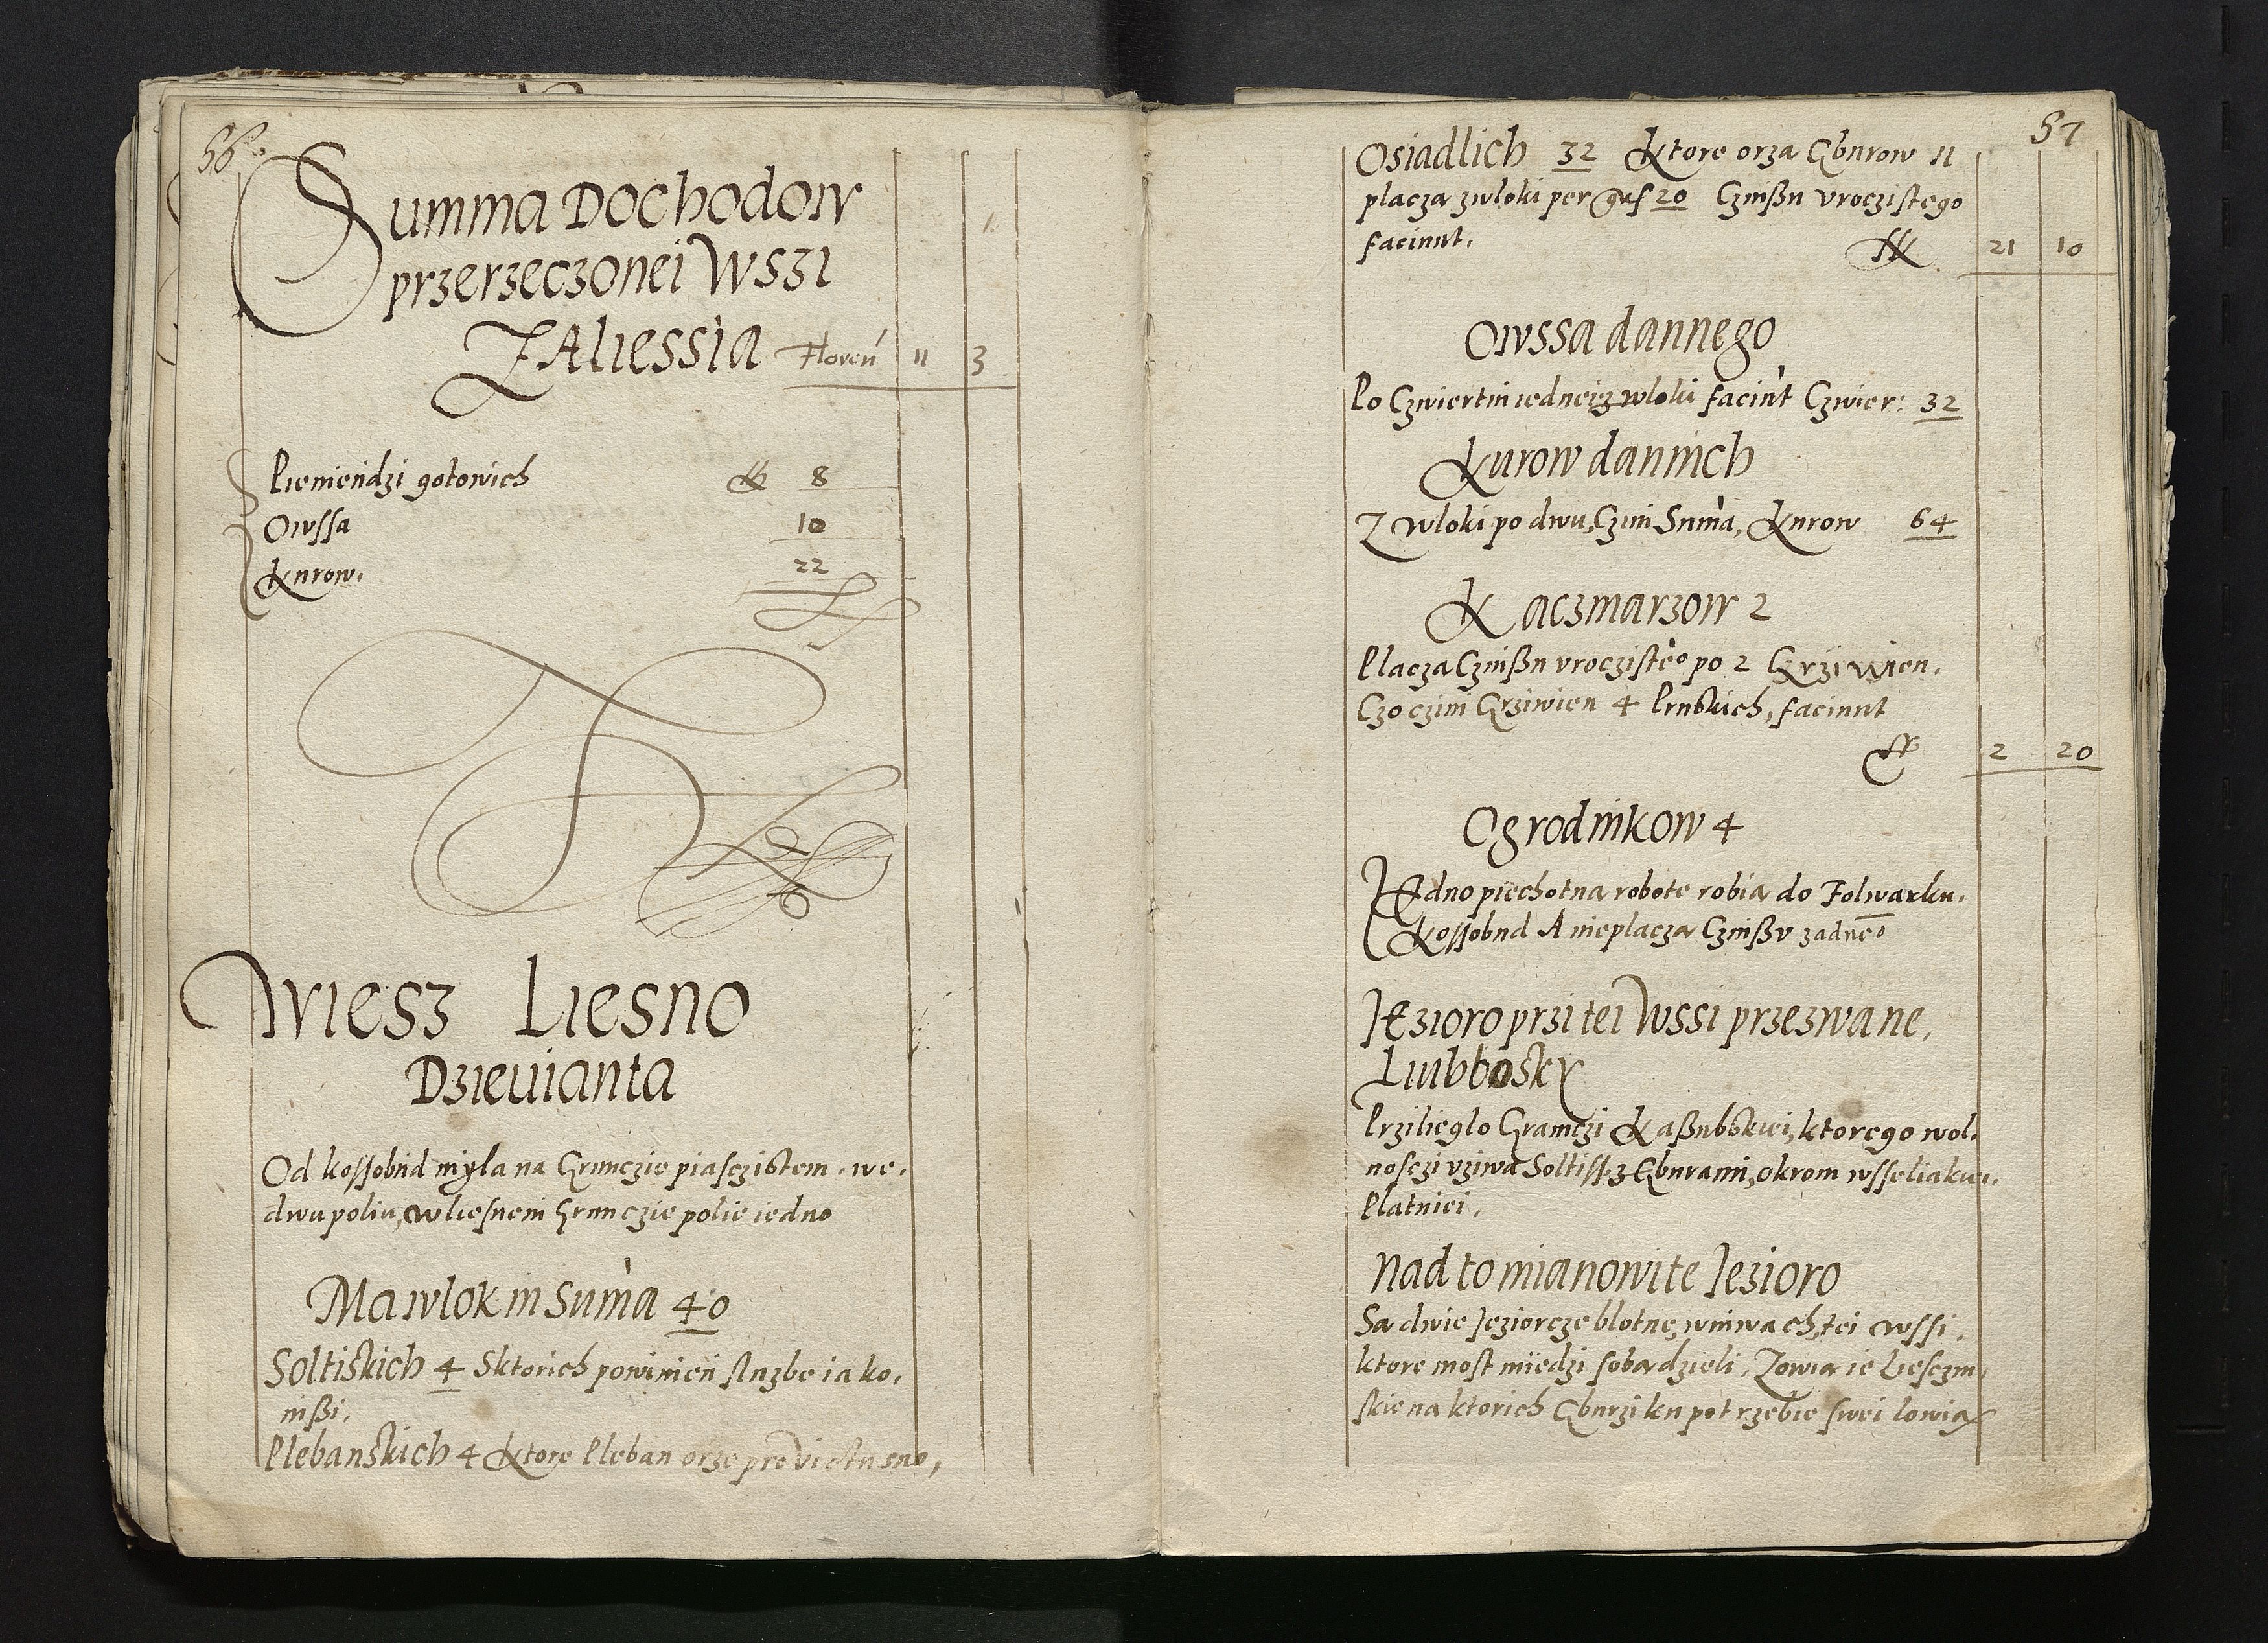 56.
Summa Dochodow
przerzeczonei Wszi
ZAliessia Floreń 11 3
Pieniendzi gotowich 8
Owssa 10
Kurow. 22
Wiesz Liesno
Dzieuianta
Od kossobud myla na Grunczie piasczistem. we.
dwu poliu, w liesnem Grunczie polie iedno
Ma wlok in Sum̀a 40
Soltiskich 4 Sktorich powinien sluzbe iako.
inßi.
Plebanskich 4 Ktore Pleban orze pro victu suo,
57
Osiadlich 32 Ktore orza Gburow 11
placza z wloki per 20 Czinßu vroczistego
faciunt. 21 10
Owssa dannego
Po Czwiertni iednei z wloki faciùnt Czwier: 32
Kurow daninch
Z wloki po dwu, Czini Sum̀a, Kurow 64
Kaczmarzow 2
Placza Czinßu vroczisteo po 2 Grziwien.
Czo czini Grziwien 4 Pruskich, faciunt
2 20
Ogrodnikow 4
Jedno piechotna robote robia do Folwarku.
Kossobud A nieplacza Czinßv zadneo
Jezioro przi tei Wssi przezwane.
Luibbosky
Przilieglo Graniczi Kaßubskiei, ktorego wol.
nosczi vziwa Soltiss z Gburami, okrom wsseliakiei.
Platniei.
Nad to mianowite Jezioro
Sa dwie Jeziorcze blotne, w niwach, tei wssi.
ktore most miedzi soba dzieli. Zowia ie Liesczin.
skie na ktorich Gburzi ku potrzebie swei lowia